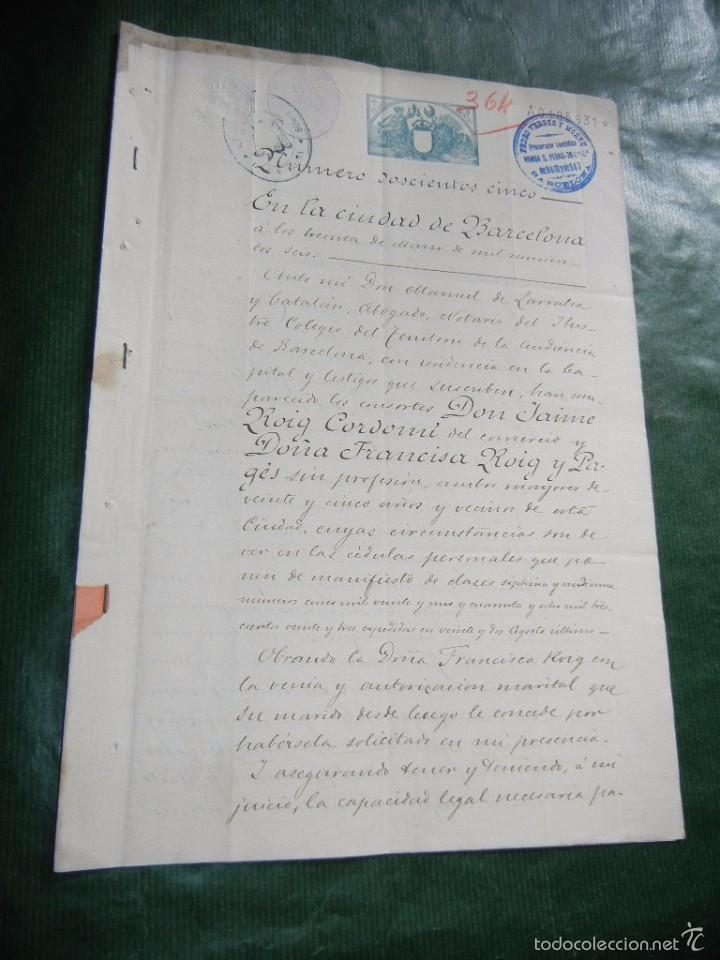 364
A0196831*
PEDRO VERGES Y MORE
BARCELONA
Numero doscientos cinco
En la ciudad de Barcelona
á los treinta de Marzo de mil novecien-
tos seis.
Ante mí Don Manuel de Larratea
y Catalán, Abogado, Notario del Ilus-
tre Colegio del Territorio de la Audiencia
de Barcelona, con residencia en la Ca-
pital y testigos que suscriben, han com-
parecido los consortes Don Jaime
Roig Cordomí del comercio y
Doña Francisca Roig y Pa-
gés sin profesión, ambos mayores de
veinte y cinco años y vecinos de esta
Ciudad, cuyas circunstancias son de
ver en las cédulas personales que po-
nen de manifiesto de clases séptima y undécima
números cinco mil veinte y uno y cuarenta y ocho mil tres-
cientos veinte y tres expedidas en veinte y dos Agosto último.
Obrando la Doña Francisca Roig con
la venia y autorización marital que
su marido desde luego le concede por
habérsela solicitado en mi presencia.
Y asegurando tener y teniendo, á mi
juicio, la capacidad legal necesaria pa-
todocoleccion.net